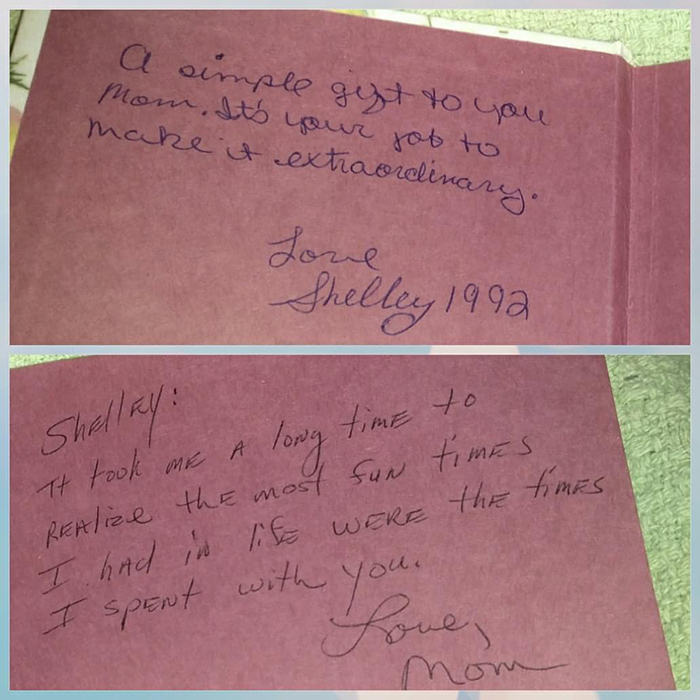 A simple gift to you
Mom. It's your job to
make it extraordinary.
Love
Shelley 1992
Shelley:
It took me a long time to
realize the most fun times
I had in life were the times
I spent with you.
Love,
Mom